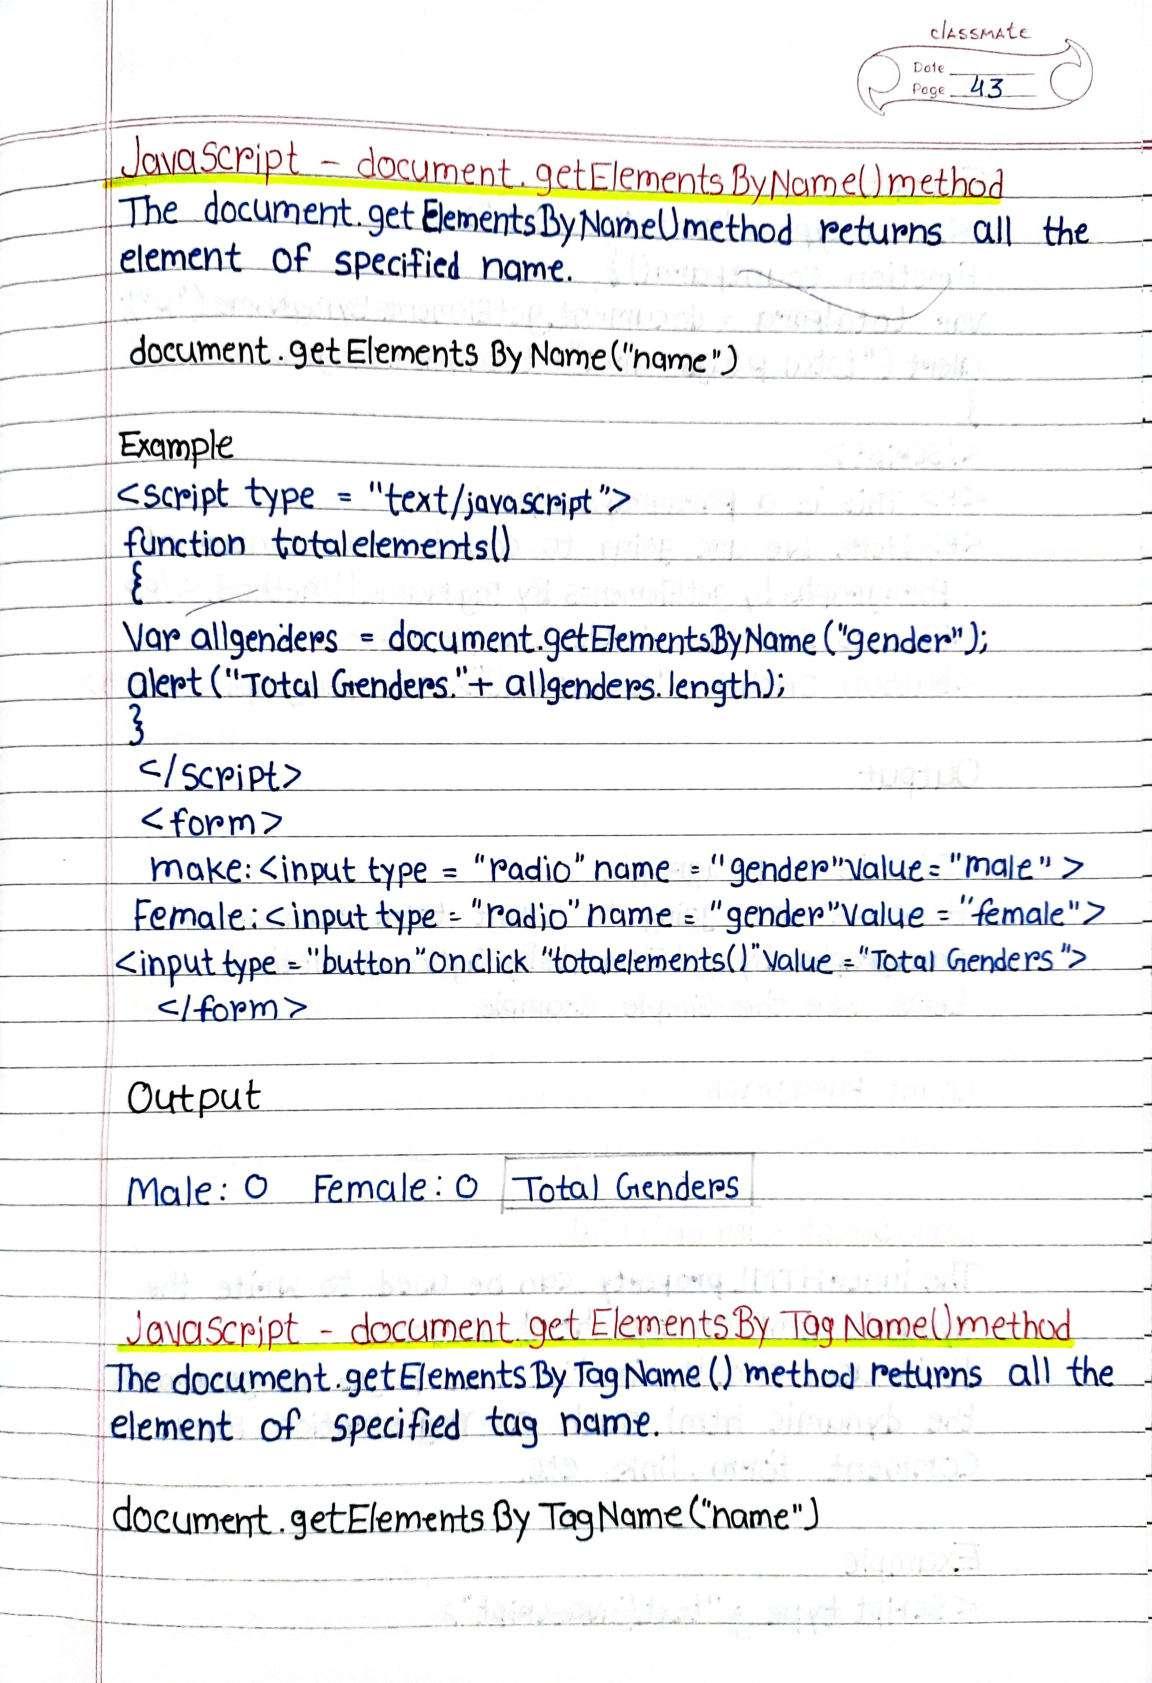 classmate
Date
Page 43
JavaScript - document.getElementsByName() method
The document.getElementsByName() method returns all the
element of specified name.
document.getElementsByName("name")
Example
<script type = "text/javascript">
function totalelements()
{
Var allgenders = document.getElementsByName("gender");
alert("Total Genders."+ allgenders.length);
}
</script>
<form>
make:<input type = "radio" name = "gender" Value = "male">
Female:<input type = "radio" name = "gender" Value = "female">
<input type = "button" onclick "totalelements()" Value = "Total Genders">
</form>
Output
Male: O Female: O Total Genders
Javascript - document.getElementsByTagName() method
The document.getElementsByTagName() method returns all the
element of specified tag name.
document.getElementsByTagName("name")